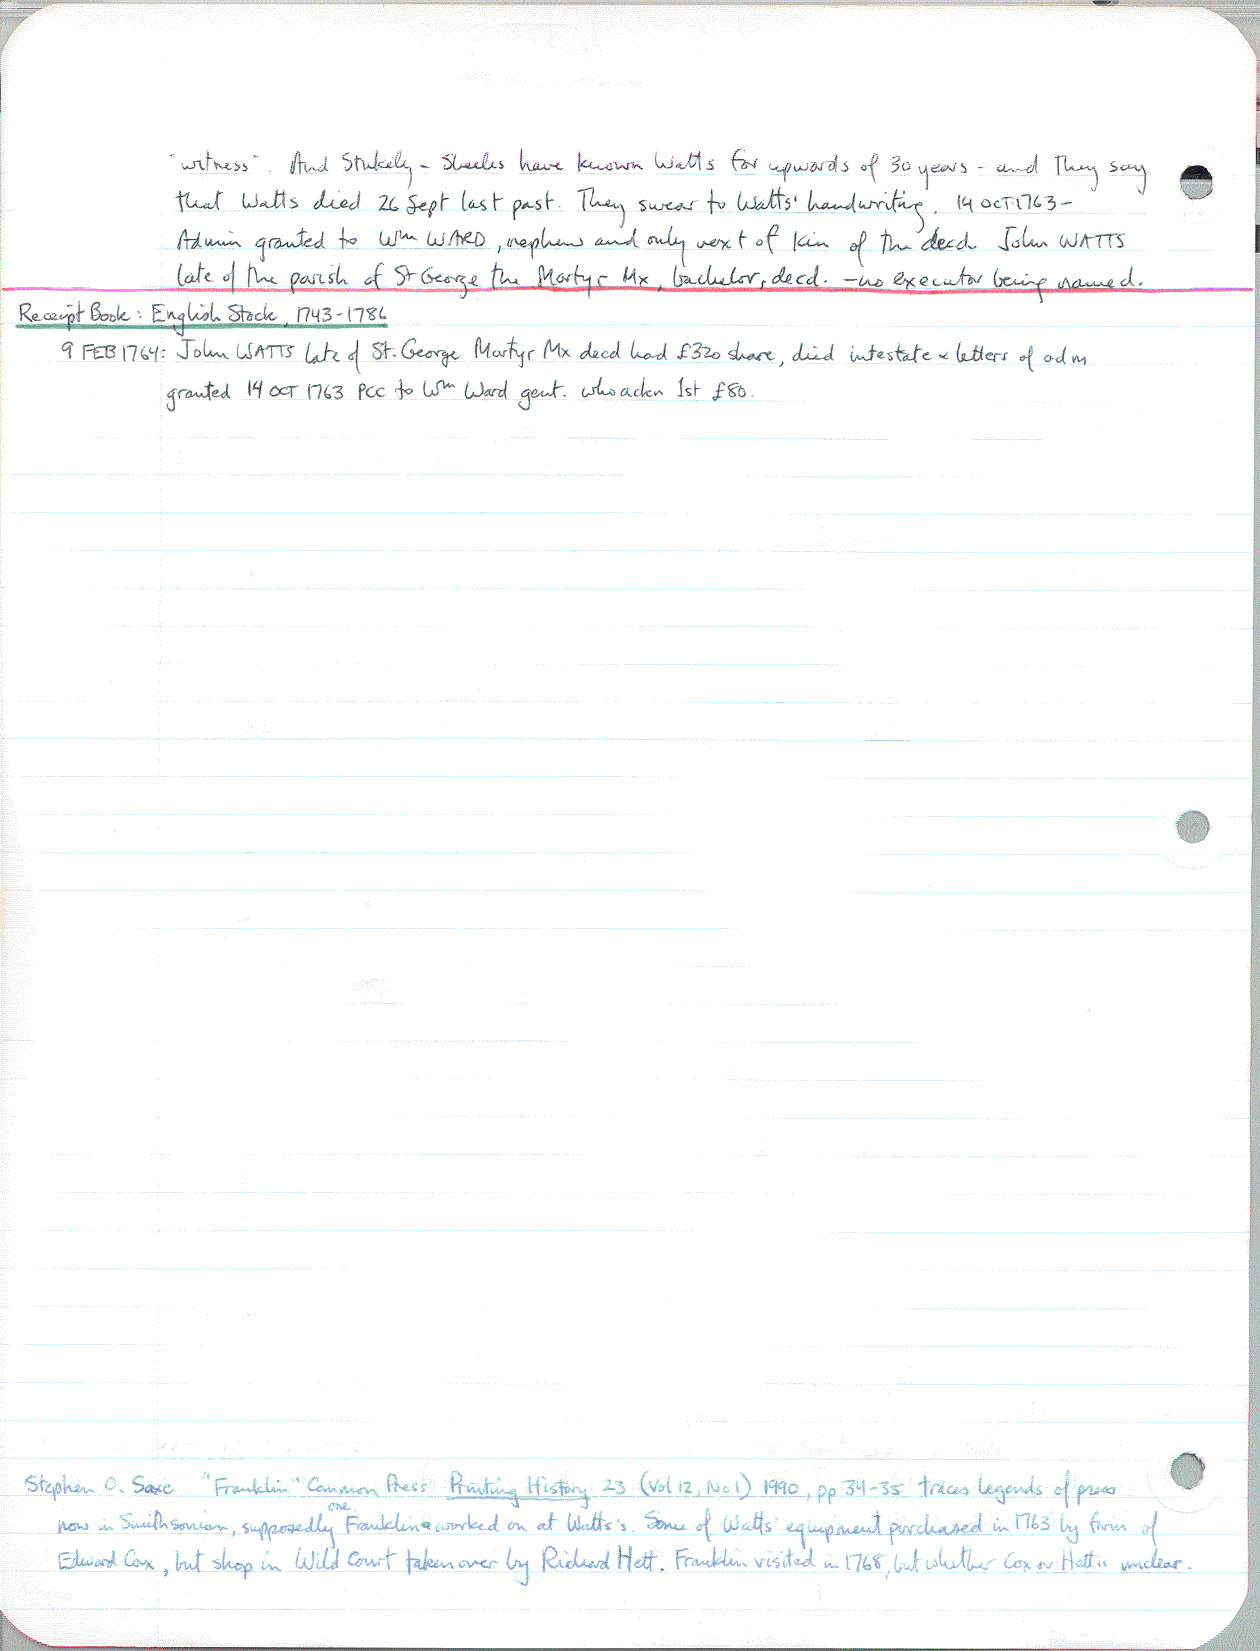 "witness". And Stukely - Sheeles have known Watts for upwards of 30 years - and They say
that Watts died 26 Sept last past. They swear to Watts' handwriting. 14 OCT 1763 -
Admin granted to Wm WARD, nephew and only next of kin of the decd. John WATTS
late of the parish of St George the Martyr Mx, bachelor, decd. - no executor being named.
Receipt Book: English Stock, 1743-1786
9 FEB 1764: John WATTS late of St. George Martyr Mx decd had £320 share, died intestate & letters of adm
granted 14 OCT 1763 PCC to Wm Ward gent. who ackn 1st £80.
Stephen O. Saxe "Franklin" Common Press Printing History 23 (Vol 12, No 1) 1990, pp 34-35 traces legends of press
now in Smithsonian, supposedly one Franklin worked on at Watts's. Some of Watts' equipment purchased in 1763 by firm of
Edward Cox, but shop in Wild Court taken over by Richard Hett. Franklin visited in 1768, but whether Cox or Hett is unclear.